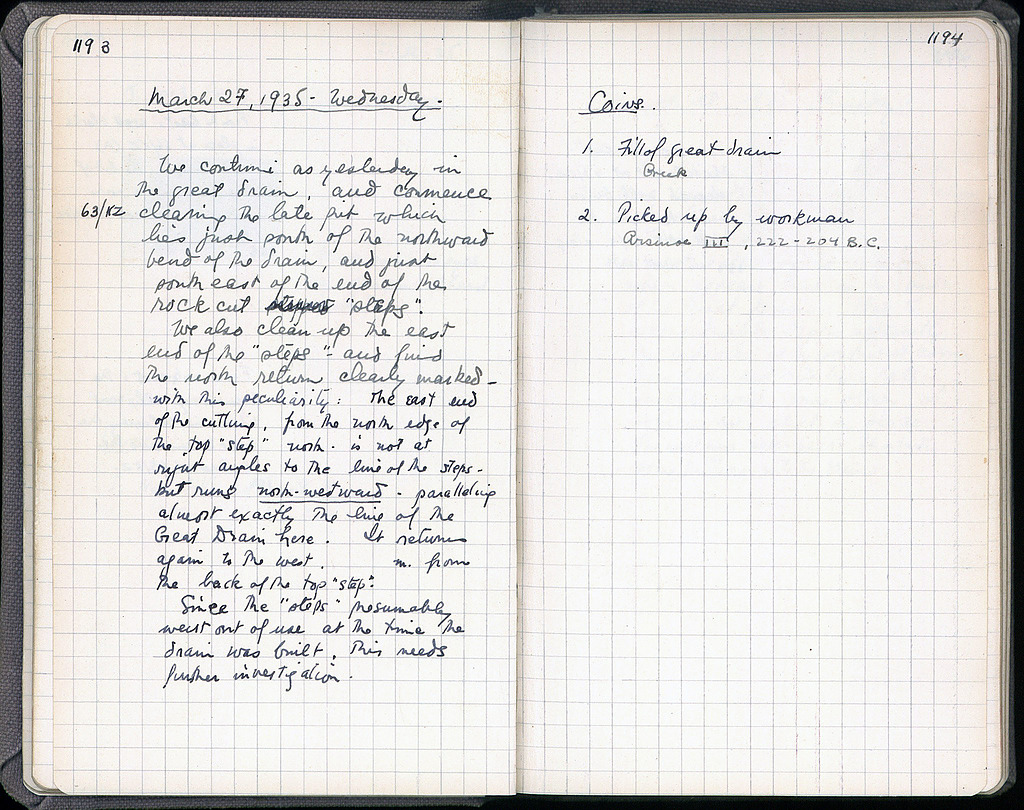 1193
March 27, 1935 - Wednesday.
We continue as yesterday in
the great drain, and commence
63/ΚΖ cleaning the late pit which
lies just south of the northward
bend of the drain, and just
south east of the end of the
rock cut "steps".
We also clean up the east
end of the "steps" - and find
the north return clearly marked -
with this peculiarity: The east end
of the cutting, from the north edge of
the top "step" north - is not at
right angles to the line of the steps -
but runs north-westward - paralleling
almost exactly the line of the
Great Drain here. It returns
again to the west, m. from
the back of the top "step".
Since the "steps" presumably
went out of use at the time the
drain was built, this needs
further investigation.
1194
Coins.
1. Fill of great drain
Greek
2. Picked up by workman
Arsinoe III, 222-204 B.C.